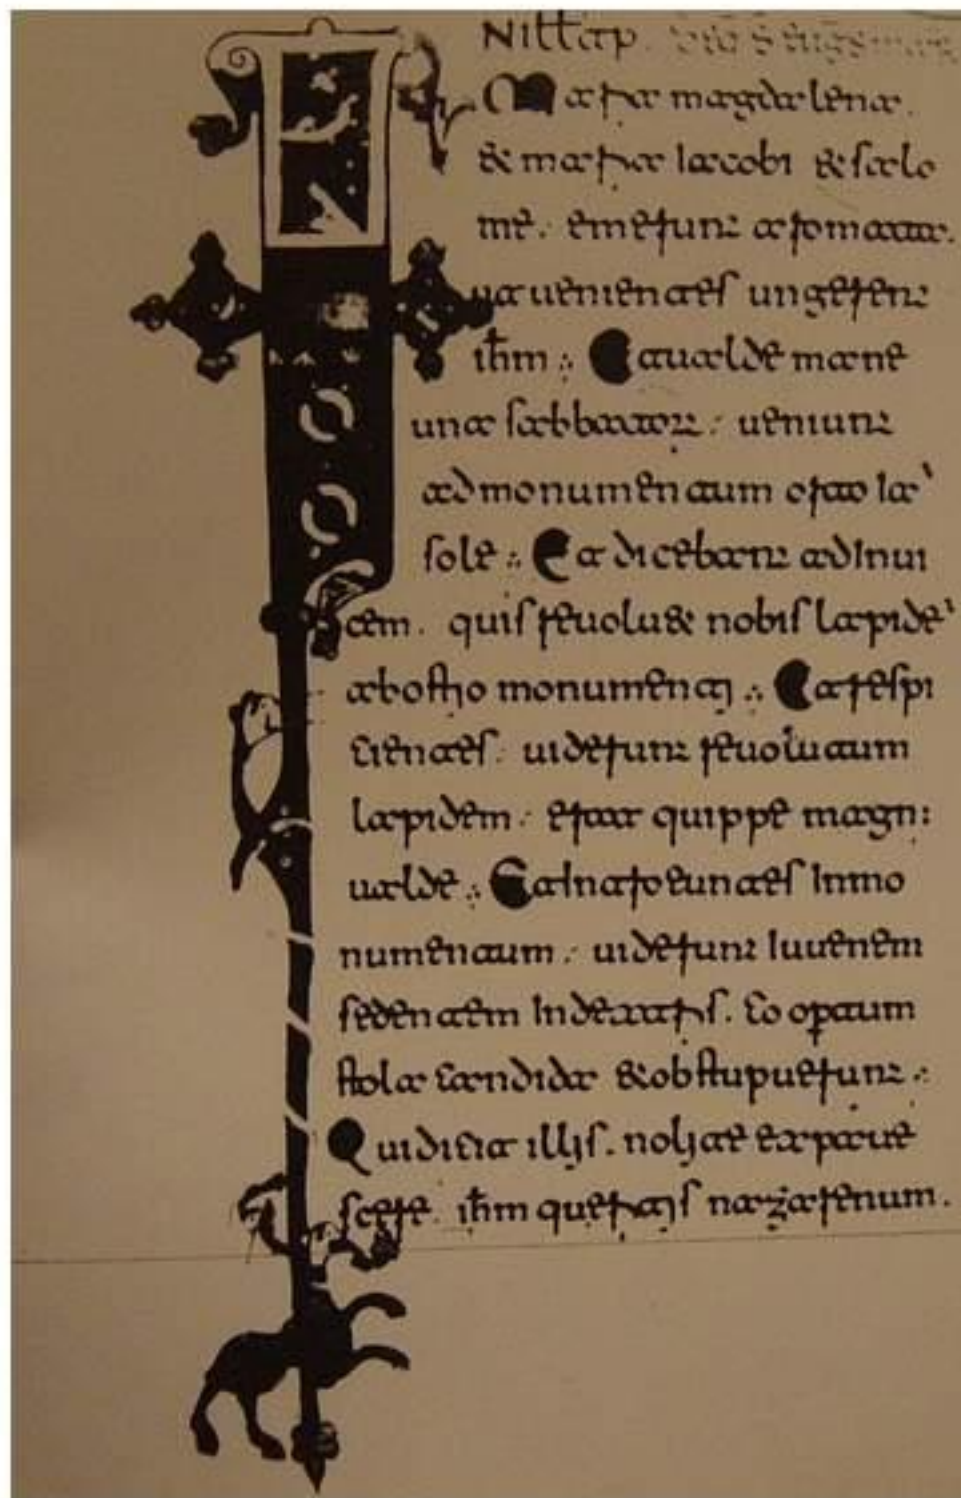 N ill t̄ap.
Maria magdalena.
& maria Iacobi & salo
me. emerunt aromata.
ut venientes ungerent
ih̄m ∴ Et valde mane
una sabbatorum. veniunt
ad monumentum orto Ia
sole ∴ Et dicebant adInvi
cem. quis revolu& nobis lapide
abostio monumenti ∴ Et respi
cientes. viderunt revolutum
lapidem. erat quippe magn:
valde ∴ Et Introeuntes Inmo
numentum. viderunt Iuvenem
sedentem Indextris. coopertum
stola candida &obstupuerunt ∴
Qui dicit illis. nolite expave
scere. ih̄m queritis nazarenum.